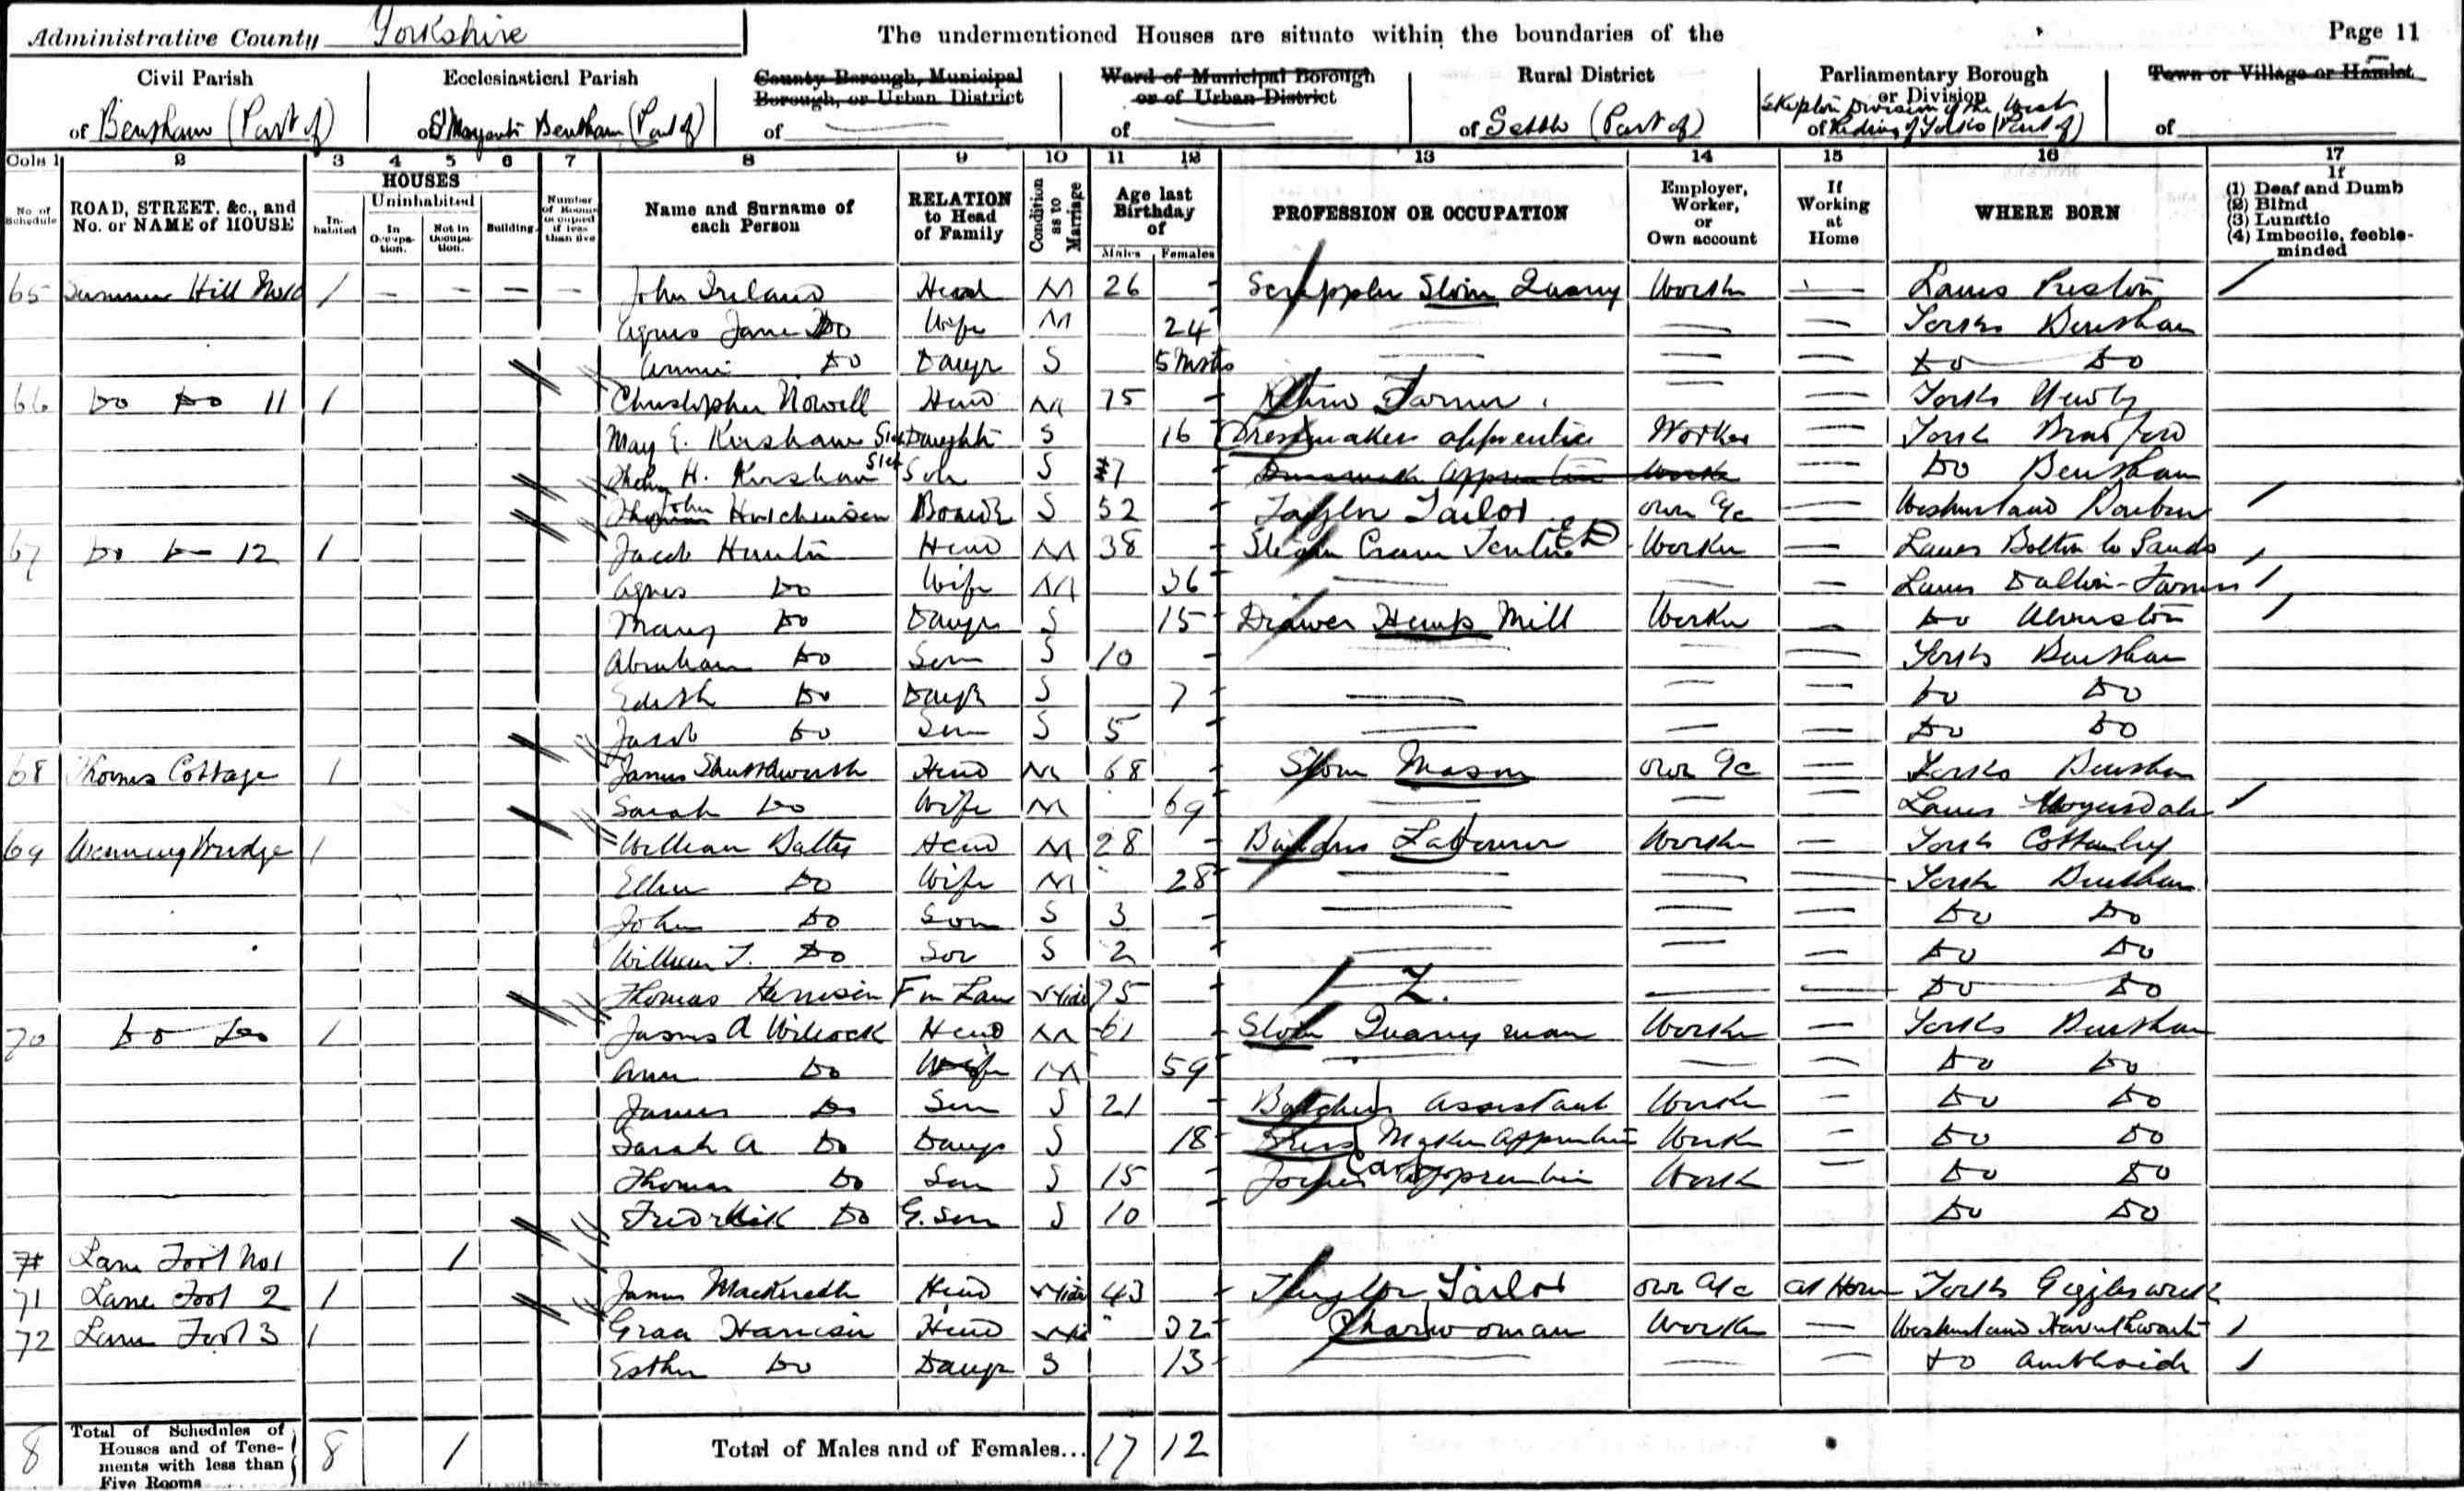 Administrative County Yorkshire The undermentioned Houses are situate within the boundaries of the Page 11
Civil Parish Ecclesiastical Parish County Borough, Municipal Borough, or Urban District Ward of Municipal Borough or of Urban District Rural District Parliamentary Borough or Division Town or Village or Hamlet
of Bentham (Part of) of St Margarets Bentham (Part of) of — of — of Settle (Part of) Skipton Division of the West of Riding of Yorks (Part of) of
Cols 1 2 3 4 5 6 7 8 9 10 11 12 13 14 15 16 17
No. of Schedule ROAD, STREET, &c., and No. or NAME of HOUSE HOUSES In-habited Uninhabited In Occupa-tion. Not in Occupa-tion. Building. Number of Rooms occupied if less than five Name and Surname of each Person RELATION to Head of Family Condition as to Marriage Age last Birthday of Males Females PROFESSION OR OCCUPATION Employer, Worker, or Own account If Working at Home WHERE BORN If (1) Deaf and Dumb (2) Blind (3) Lunatic (4) Imbecile, feeble-minded
65 Summer Hill No 10 1 - - - - John Ireland Head M 26 - Scrappler Stone Quarry Worker — Lancs Preston
Agnes Jane Do Wife M 24 — — — Yorks Bentham
Annie Do Daugr S 5 Mnths — — — Do Do
66 Do Do 11 1 Christopher Nowell Head M 75 - Farmer — Yorks Newby
May E. Kershaw Step Daughter S 16 Dressmaker apprentice Worker — York Bradford
H. Kershaw Step Son S 7 - Dressmak Apprentice Worker — Do Bentham
John Hutchinson Board S 52 Taylor Tailor own a/c — Westmorland Barbon
67 Do Do 12 1 Jacob Huntin Head M 38 - Steam Crane Tenter Worker — Lancs Bolton le Sands
Agnes Do Wife M 36 — — — Lancs Dalton-Furness
Mary Do Daugr S 15 Drawer Hemp Mill Worker — Do Ulverston
Abraham Do Son S 10 - — — — Yorks Bentham
Edith Do Daugr S 7 — — — Do Do
Jacob Do Son S 5 - — — — Do Do
68 Thornes Cottage 1 James Shuttleworth Head M 68 - Stone Mason own a/c — Yorks Bentham
Sarah Do Wife M 69 — — — Lancs
69 Wenning Bridge 1 William Batty Head M 28 - Builders Labourer Worker — York Cottingley
Ellen Do Wife M 28 — — — York Bentham
John Do Son S 3 - — — — Do Do
William T. Do Son S 2 - — — — Do Do
Thomas Harrison F in Law Wid 75 — — — Do Do
70 Do Do 1 James A Wilcock Head M 61 - Stone Quarry man Worker — Yorks Bentham
Ann Do Wife M 59 — — — Do Do
James Do Son S 21 - Butchers Assistant Worker — Do Do
Sarah A Do Daugr S 18 Dress Maker Apprentice Worker — Do Do
Thomas Do Son S 15 - Joiner Carp Apprentice Worker — Do Do
Fredrick Do G. Son S 10 - Do Do
71 Lane Foot No 1 1
71 Lane Foot 2 1 James Mackereth Head Wid 43 - Taylor Tailor own a/c at Home Yorks Giggleswick
72 Lane Foot 3 1 Grace Harrison Head Wid 32 Charwoman Worker — Westmorland
Esther Do Daugr S 13 — — — Do Ambleside
8 Total of Schedules of Houses and of Tene-ments with less than Five Rooms 8 1 Total of Males and of Females... 17 12